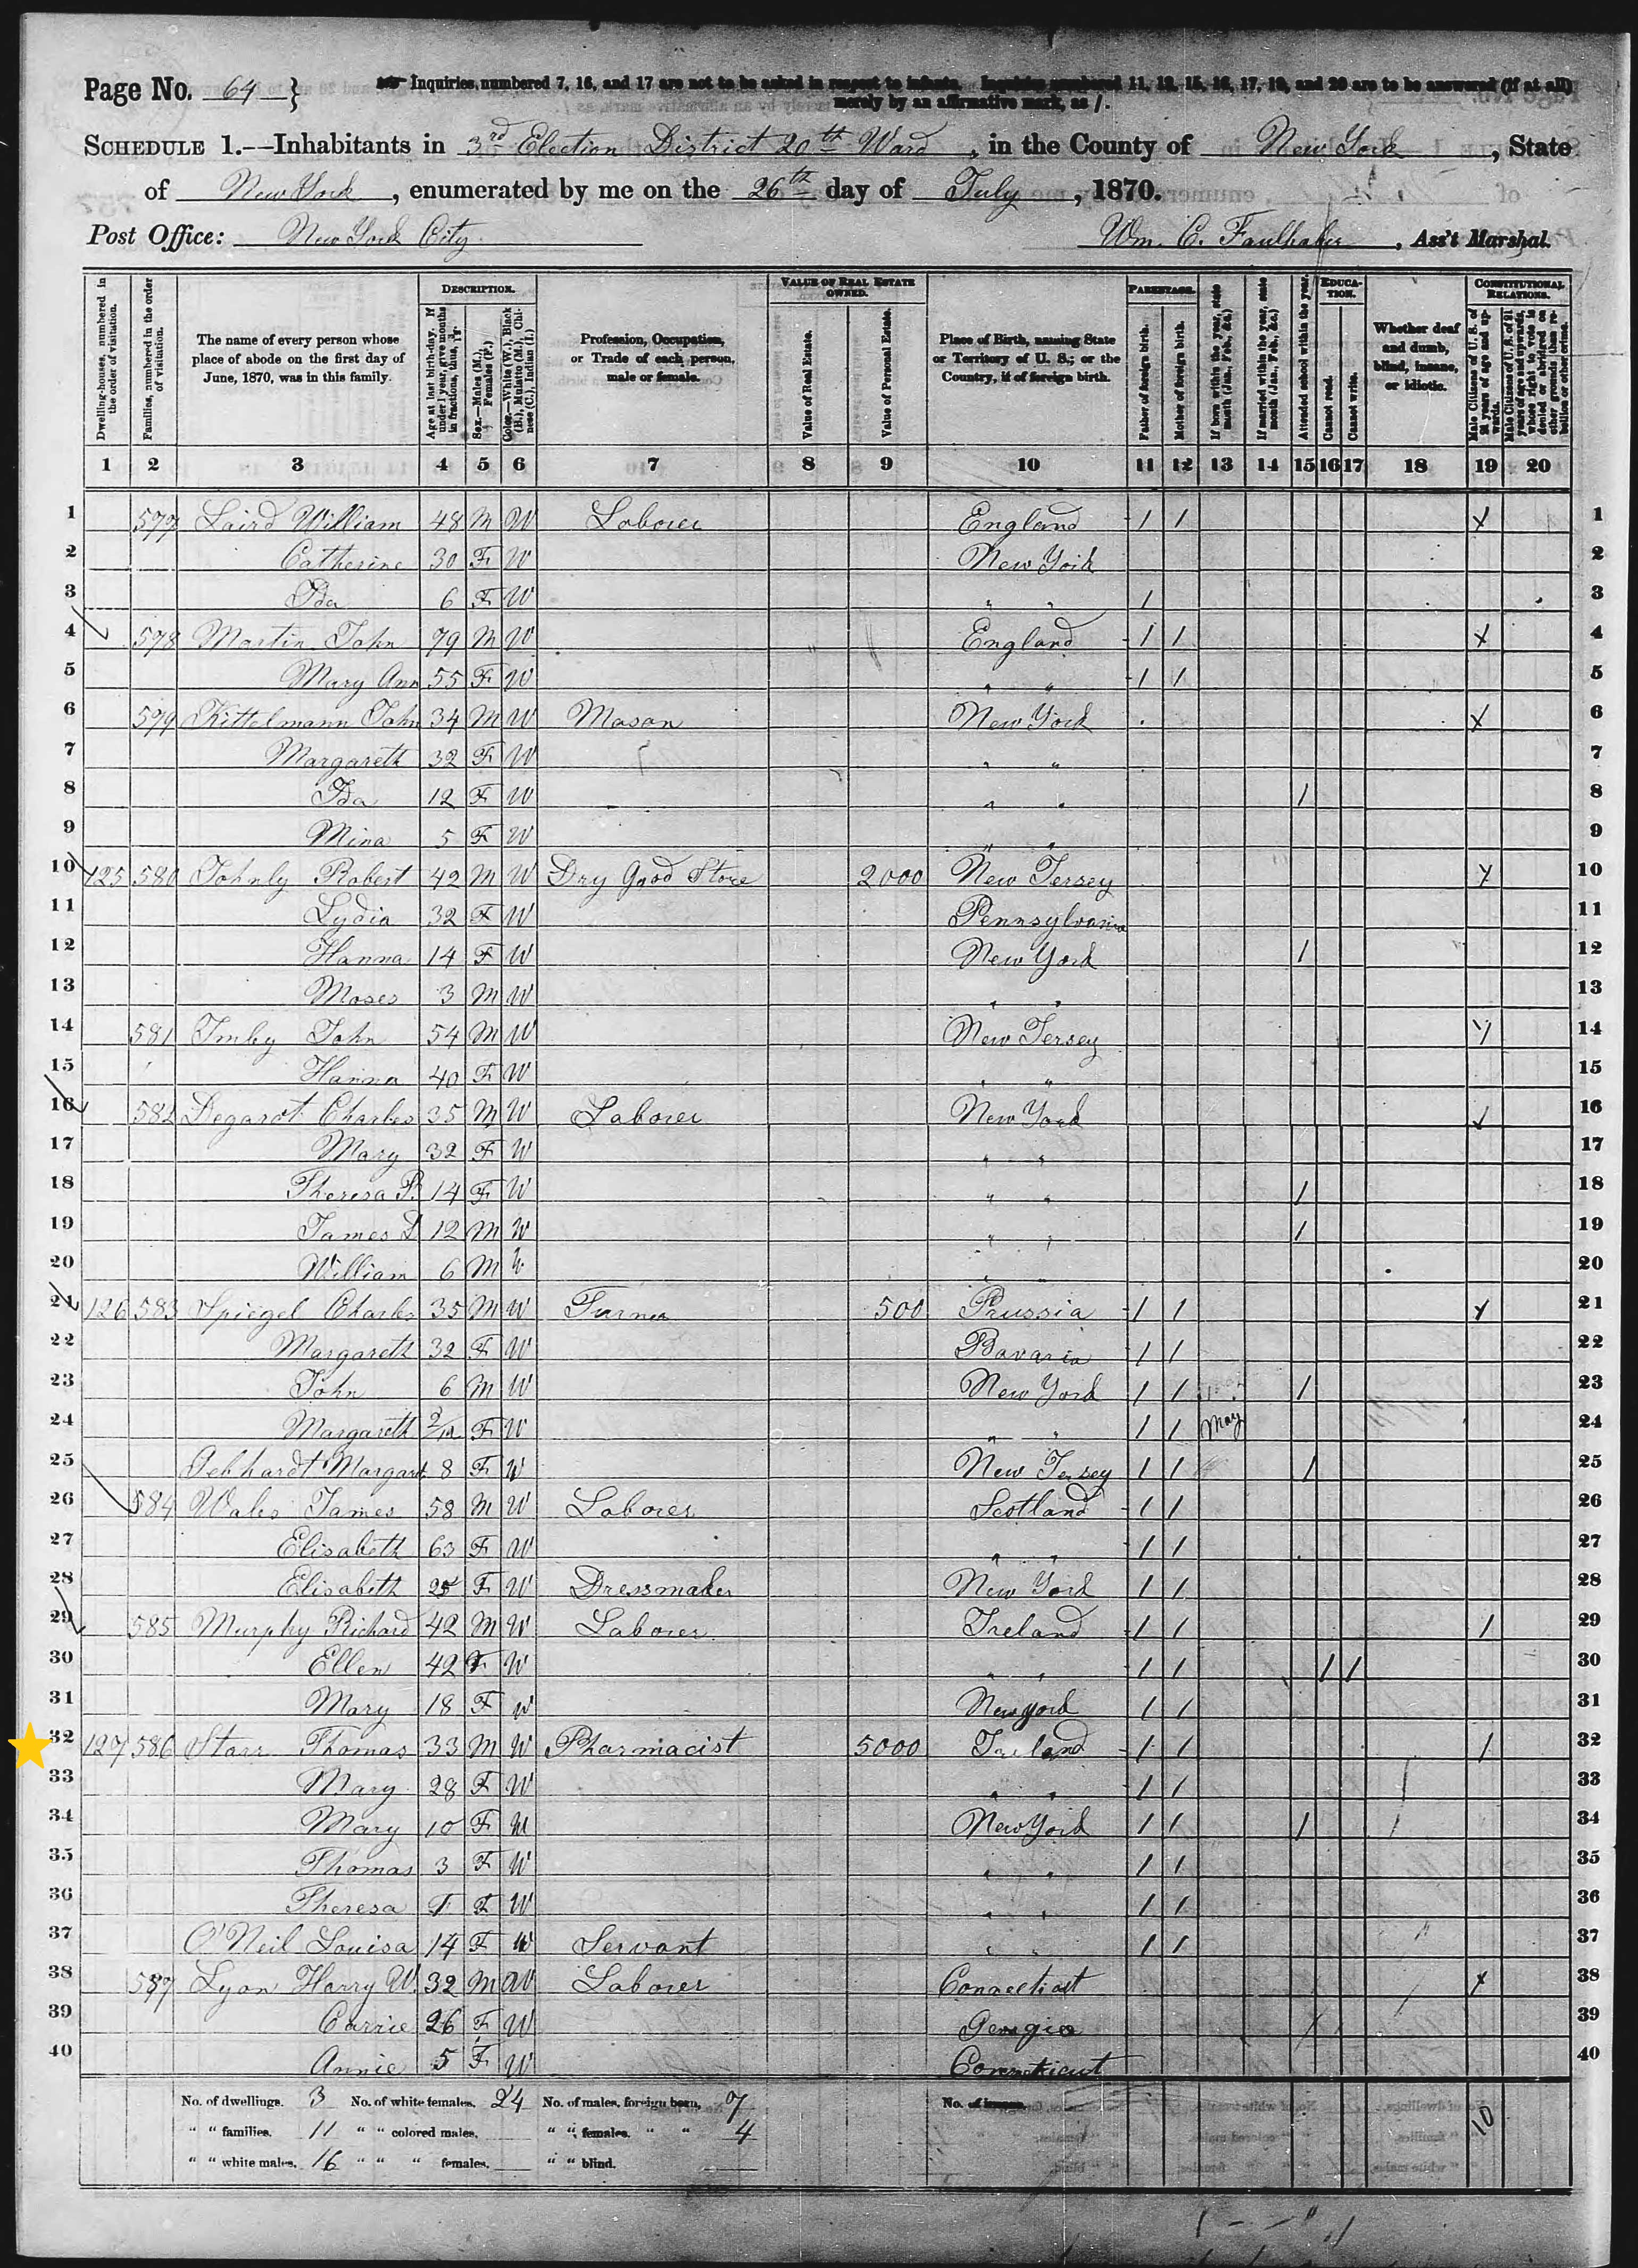 Page No. 64 }
Inquiries numbered 7, 16, and 17 are not to be asked in respect to infants. Inquiries numbered 11, 12, 15, 16, 17, 19, and 20 are to be answered (if at all)
merely by an affirmative mark, as /.
SCHEDULE 1.—Inhabitants in 3rd Election District 20th Ward, in the County of New York, State
of New York, enumerated by me on the 26th day of July, 1870.
Post Office: New York City Wm. C. Faulhaber, Ass't Marshal.
Dwelling-houses, numbered in the order of visitation.
Families, numbered in the order of visitation.
The name of every person whose place of abode on the first day of June, 1870, was in this family.
DESCRIPTION.
Age at last birth-day. If under 1 year, give months in fractions, thus,
Sex.—Males (M.), Females (F.)
Color.—White (W.), Black (B.), Mulatto (M.), Chinese (C.), Indian (I.)
Profession, Occupation, or Trade of each person, male or female.
VALUE OF REAL ESTATE OWNED.
Value of Real Estate.
Value of Personal Estate.
Place of Birth, naming State or Territory of U. S.; or the Country, if of foreign birth.
PARENTAGE.
Father of foreign birth.
Mother of foreign birth.
If born within the year, state month (Jan., Feb., &c.)
If married within the year, state month (Jan., Feb., &c.)
Attended school within the year.
EDUCATION.
Cannot read.
Cannot write.
Whether deaf and dumb, blind, insane, or idiotic.
CONSTITUTIONAL RELATIONS.
Male Citizens of U. S. of 21 years of age and upwards.
Male Citizens of U. S. of 21 years of age and upwards, whose right to vote is denied or abridged on other grounds than rebellion or other crime.
1 2 3 4 5 6 7 8 9 10 11 12 13 14 15 16 17 18 19 20
1 577 Laird William 48 M W Laborer England / / X 1
2 Catherine 30 F W New York 2
3 Ida 6 F W " " / 3
4 578 Martin John 79 M W England / / X 4
5 Mary Ann 55 F W " " / / 5
6 579 Kittelmann John 34 M W Mason New York X 6
7 Margareth 32 F W " " 7
8 Ida 12 F W " " / 8
9 Mina 5 F W " " 9
10 125 580 Johnly Robert 42 M W Dry Good Store 2000 New Jersey X 10
11 Lydia 32 F W Pennsylvania 11
12 Hanna 14 F W New York / 12
13 Moses 3 M W " " 13
14 581 Imby John 54 M W New Jersey X 14
15 Hanna 40 F W " " 15
16 582 Degarot Charles 35 M W Laborer New York X 16
17 Mary 32 F W " " 17
18 Theresa P. 14 F W " " / 18
19 James D 12 M W " " / 19
20 William 6 M W " " 20
21 126 583 Spiegel Charles 35 M W Turner 500 Prussia / / X 21
22 Margareth 32 F W Bavaria / / 22
23 John 6 M W New York / / / 23
24 Margareth 2/12 F W " " / / May 24
25 Gebhardt Margart 8 F W New Jersey / / / 25
26 584 Wales James 58 M W Laborer Scotland / / 26
27 Elisabeth 63 F W " " / / 27
28 Elisabeth 25 F W Dressmaker New York / / 28
29 585 Murphy Richard 42 M W Laborer Ireland / / / 29
30 Ellen 42 F W " " / / / / 30
31 Mary 18 F W New York / / 31
32 127 586 Starr Thomas 33 M W Pharmacist 5000 Ireland / / / 32
33 Mary 28 F W " " / / 33
34 Mary 10 F W New York / / / 34
35 Thomas 3 F W " " / / 35
36 Theresa 1 F W " " / / 36
37 O'Neil Louisa 14 F W Servant " " / / 37
38 587 Lyon Harry W. 32 M W Laborer Connecticut X 38
39 Carrie 26 F W Georgia 39
40 Annie 5 F W Connecticut 40
No. of dwellings. 3 No. of white females. 24 No. of males, foreign born. 7 No. of insane. 10
" " families. 11 " " colored males. " " females. " " 4
" " white males. 16 " " " females. " " blind.